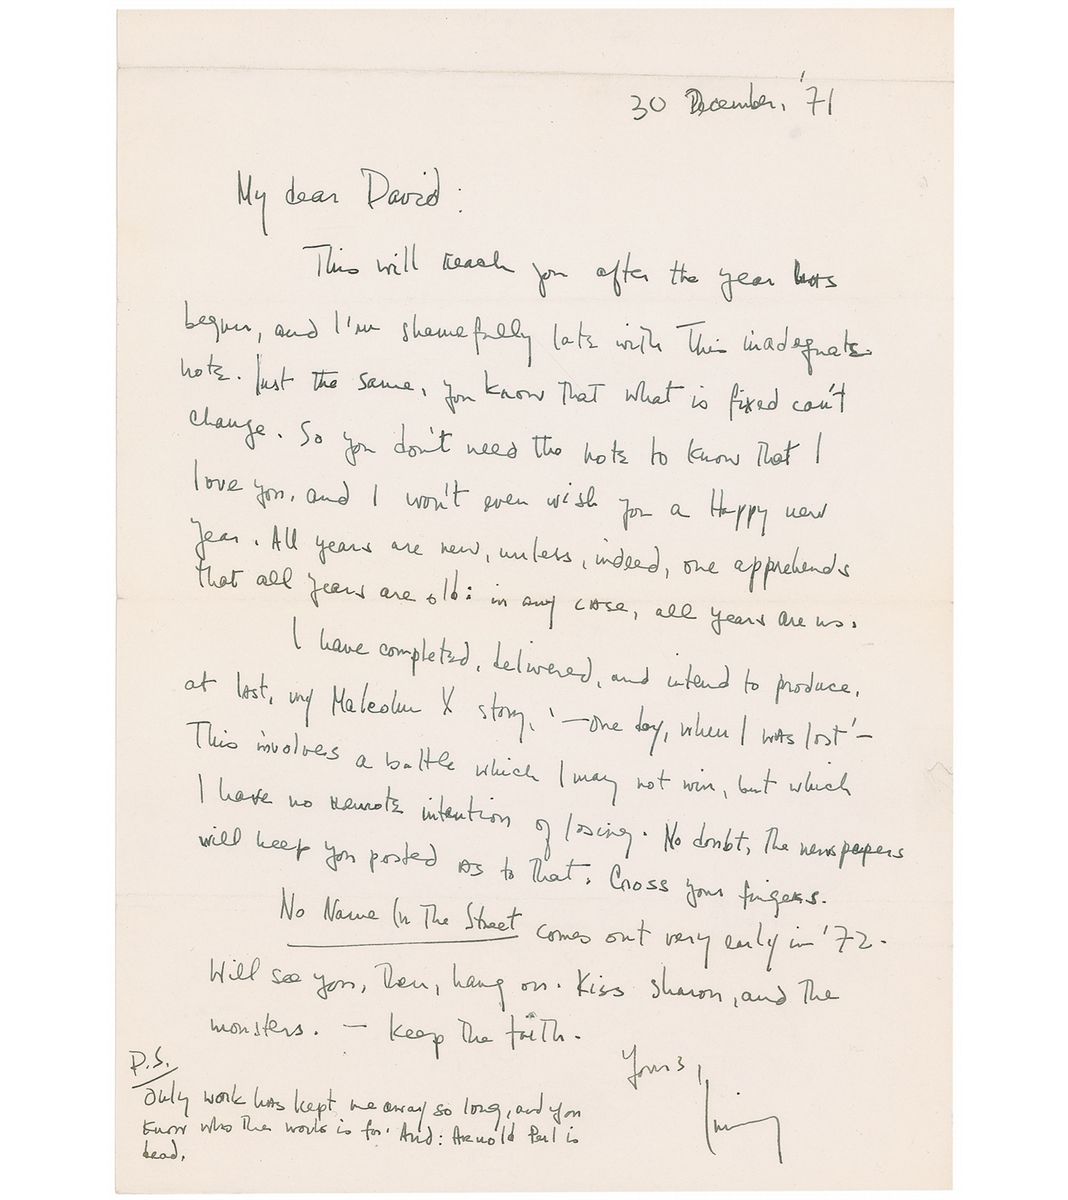 30 December, '71
My dear David:
This will reach you after the year has
begun, and I'm shamefully late with this inadequate
note. Just the same, you know that what is fixed can't
change. So you don't need the note to know that I
love you, and I won't even wish you a Happy new
year. All years are new, unless, indeed, one apprehends
that all years are old: in any case, all years are us.
I have completed, delivered, and intend to produce,
at last, my Malcolm X story, '—One day, when I was lost'—
This involves a battle which I may not win, but which
I have no remote intention of losing. No doubt, the newspapers
will keep you posted as to that. Cross your fingers.
No Name In The Street comes out very early in '72.
Will see you, then, hang on. Kiss Sharon, and the
monsters. — Keep the faith.
Yours,
Jimmy
P.S.
Only work has kept me away so long, and you
know who the work is for. And: Arnold Perl is
dead.